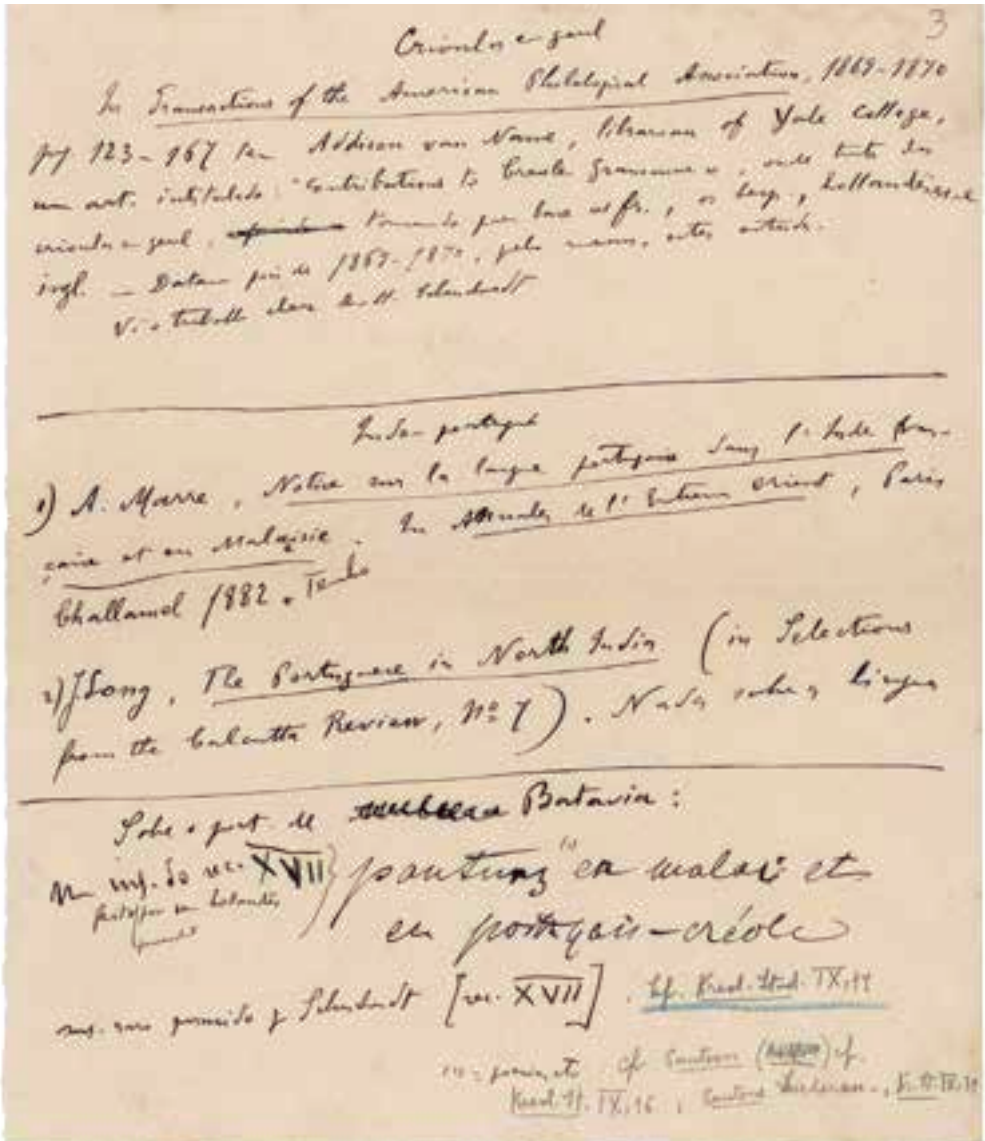 3
Crioulos em geral
In Transactions of the American Philological Association, 1869-1870
pg 123-167 tem Addison van Name, librarian of Yale College,
um art. intitulado: "Contributions to Creole Grammar", onde trata dos
crioulos em geral, tomando por base os fr., os hesp., hollandeses e
ingl. - Datam pois de 1869-1870, pelo menos, estes estudos.
Vi o trabalho
Indo-português
1) A. Marre, Notice sur la langue portugaise dans l'Inde fran-
çaise et en Malaisie. In Annales de l'Extrême Orient, Paris
Challamel 1882. Tenho
2) J Long, The Portuguese in North India (in Selections
from the Calcutta Review, nº 7). Nada sobre a lingua
Sobre o port. de Batavia:
Um ms. do sec. XVII
feito por um holandês
pantung (1) en malai et
en portugais-créole
ms. raro possuido p Schuchardt [sec. XVII]. Cf. Kreol. Stud. IX,
cf
Kreol. St. IX, 16;